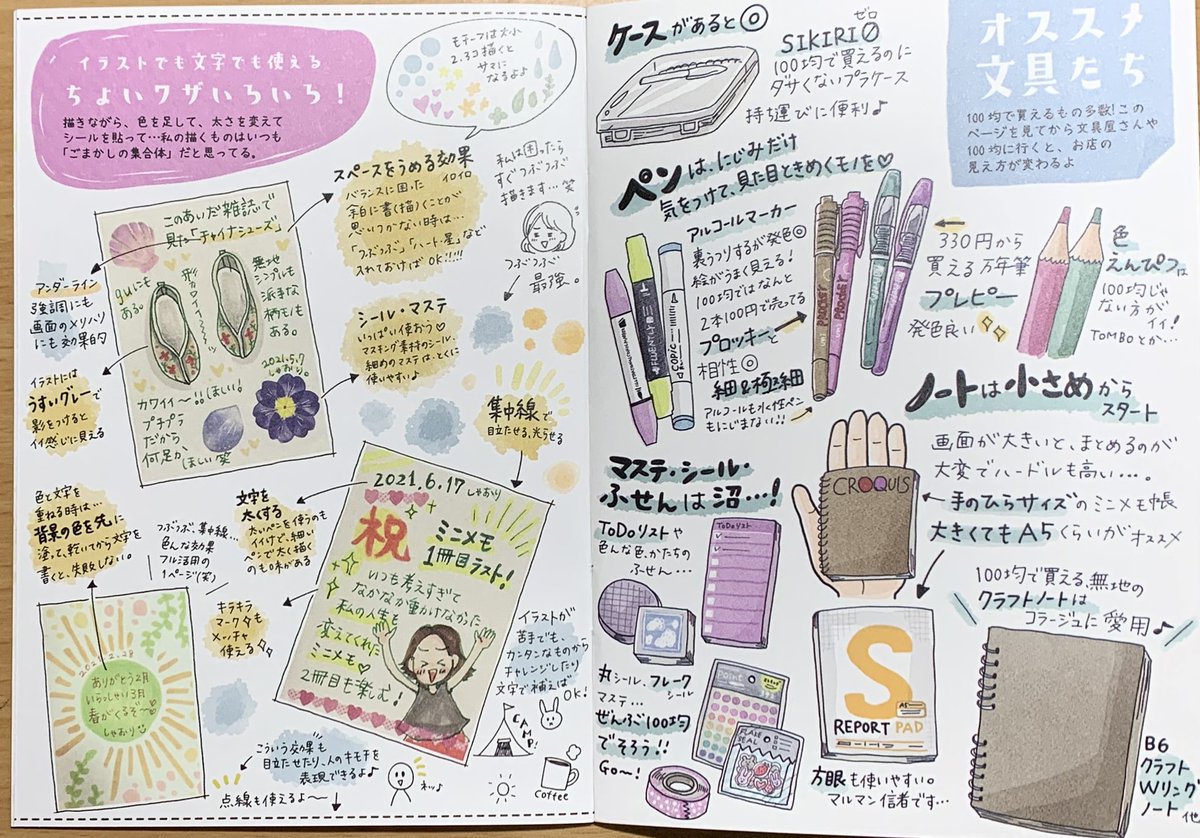 イラストでも文字でも使える
ちょいワザいろいろ！
描きながら、色を足して、太さを変えて
シールを貼って…私の描くものはいつも
「ごまかしの集合体」だと思ってる。
モチーフは大小
2、3コ描くと
サマに
なるよよ
スペースをうめる効果
イロイロ
バランスに困った
余白に書く(描く)ことが
思いつかない時は…
「つぶつぶ」「ハート・星」など
入れておけばOK!!!!!
私は困ったら
すぐつぶつぶ
描きます…笑
つぶつぶ
最強。
このあいだ雑誌で
見た「チャイナシューズ」
guにも
ある。
形カワイイ〜
無地
シンプルも
派手な
柄モノも
ある。
2021.5.7
しゃおり。
カワイイ〜!!ほしい!
プチプラ
だから、
何足か、ほしい 笑
アンダーライン
強調にも
画面のメリハリ
にも効果的
イラストには
うすいグレーで
影をつけると
イイ感じに見える
シール・マステ
いっぱい使おう♡
マスキング素材のシール、
細めのマステは、とくに
使いやすい♪
集中線で
目立たせる、光らせる
色と文字を
重ねる時は…
背景の色を先に
塗って、乾いてから文字を
書くと、失敗しない。
つぶつぶ、集中線…
色んな効果
フル活用の
1ページ(笑)
文字を
太くする
太いペンを使うのも
イイけど、細い
ペンで太く描く
のも味がある
キラキラ
マークも
メッチャ
使える
2021.6.17 しゃおり
祝
ミニメモ
1冊目ラスト!
いつも考えすぎて
なかなか動けなかった
私の人生を
変えてくれた
ミニメモ♡
2冊目も楽しむ!
イラストが
苦手でも、
カンタンなものから
チャレンジしたり
文字で補えば
OK!
CAMP!
coffee
2021.2.28
ありがとう2月
いらっしゃい3月
春がくるぞ〜
しゃおり
こういう効果も
目立たせたり、人のキモチを
表現できるよ♪
点線も使えるよ〜
ネッ♪
ケースがあると◎
ゼロ
SIKIRI0
100均で買えるのに
ダサくないプラケース
持ち運びに便利♪
オススメ
文具たち
100均で買えるもの多数!この
ページを見てから文具屋さんや
100均に行くと、お店の
見え方が変わるよ
ペンは、にじみだけ
気をつけて、見た目ときめくモノを♡
アルコールマーカー
裏うつりするが発色◎
絵がうまく見える!
100均ではなんと
2本100円で売ってる
プロッキーと
相性◎
細&極細
アルコールも水性ペン
もにじまない!!
COPIC
PROCKEY
PROCKEY
330円から
買える万年筆
プレピー
発色良い
色
えんぴつは
100均じゃ
ない方が
イイ!
TOMBOとか…
ノートは小さめから
スタート
画面が大きいと、まとめるのが
大変でハードルも高い…。
手のひらサイズのミニメモ帳
大きくてもA5くらいがオススメ
CROQUIS
マステ・シール・
ふせんは沼…!
ToDoリストや
色んな色、かたちの
ふせん…
ToDoリスト
丸シール、フレーク
シール
マステ…
ぜんぶ100均
でそろう!!
Go〜!
Point
FLAKE
SEAL
S
REPORT PAD
A5
方眼も使いやすい。
マルマン信者です…
100均で買える、無地の
クラフトノートは
コラージュに愛用♪
B6
クラフト
Wリング
ノート 他